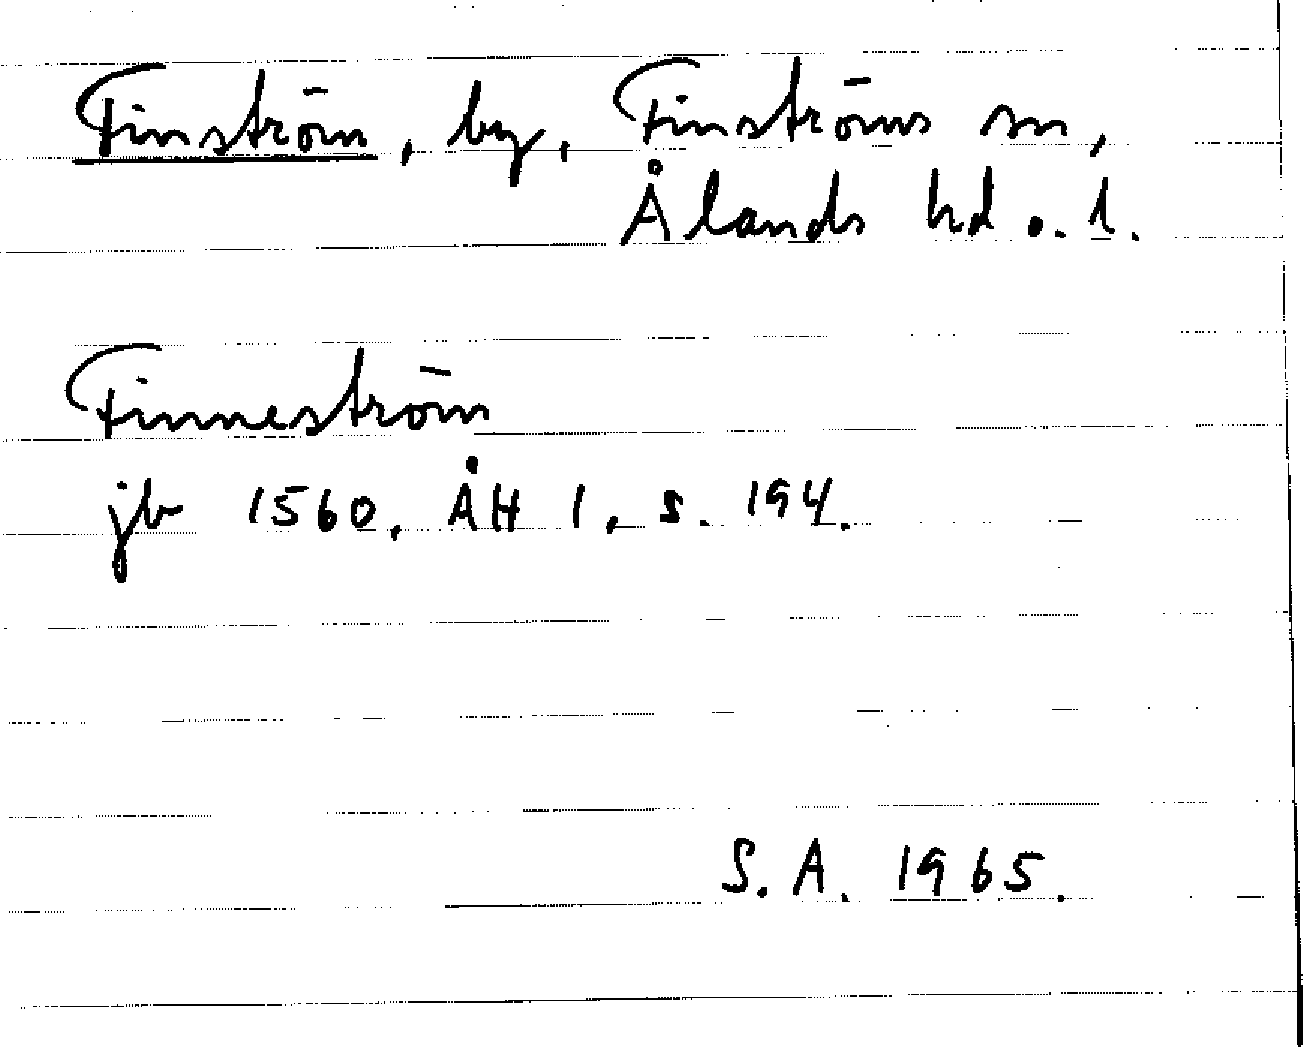 Finström, by, Finströms sn,
Ålands hd o. l.
Finneström
jb 1560, ÅH 1, s. 194.
S. A. 1965.